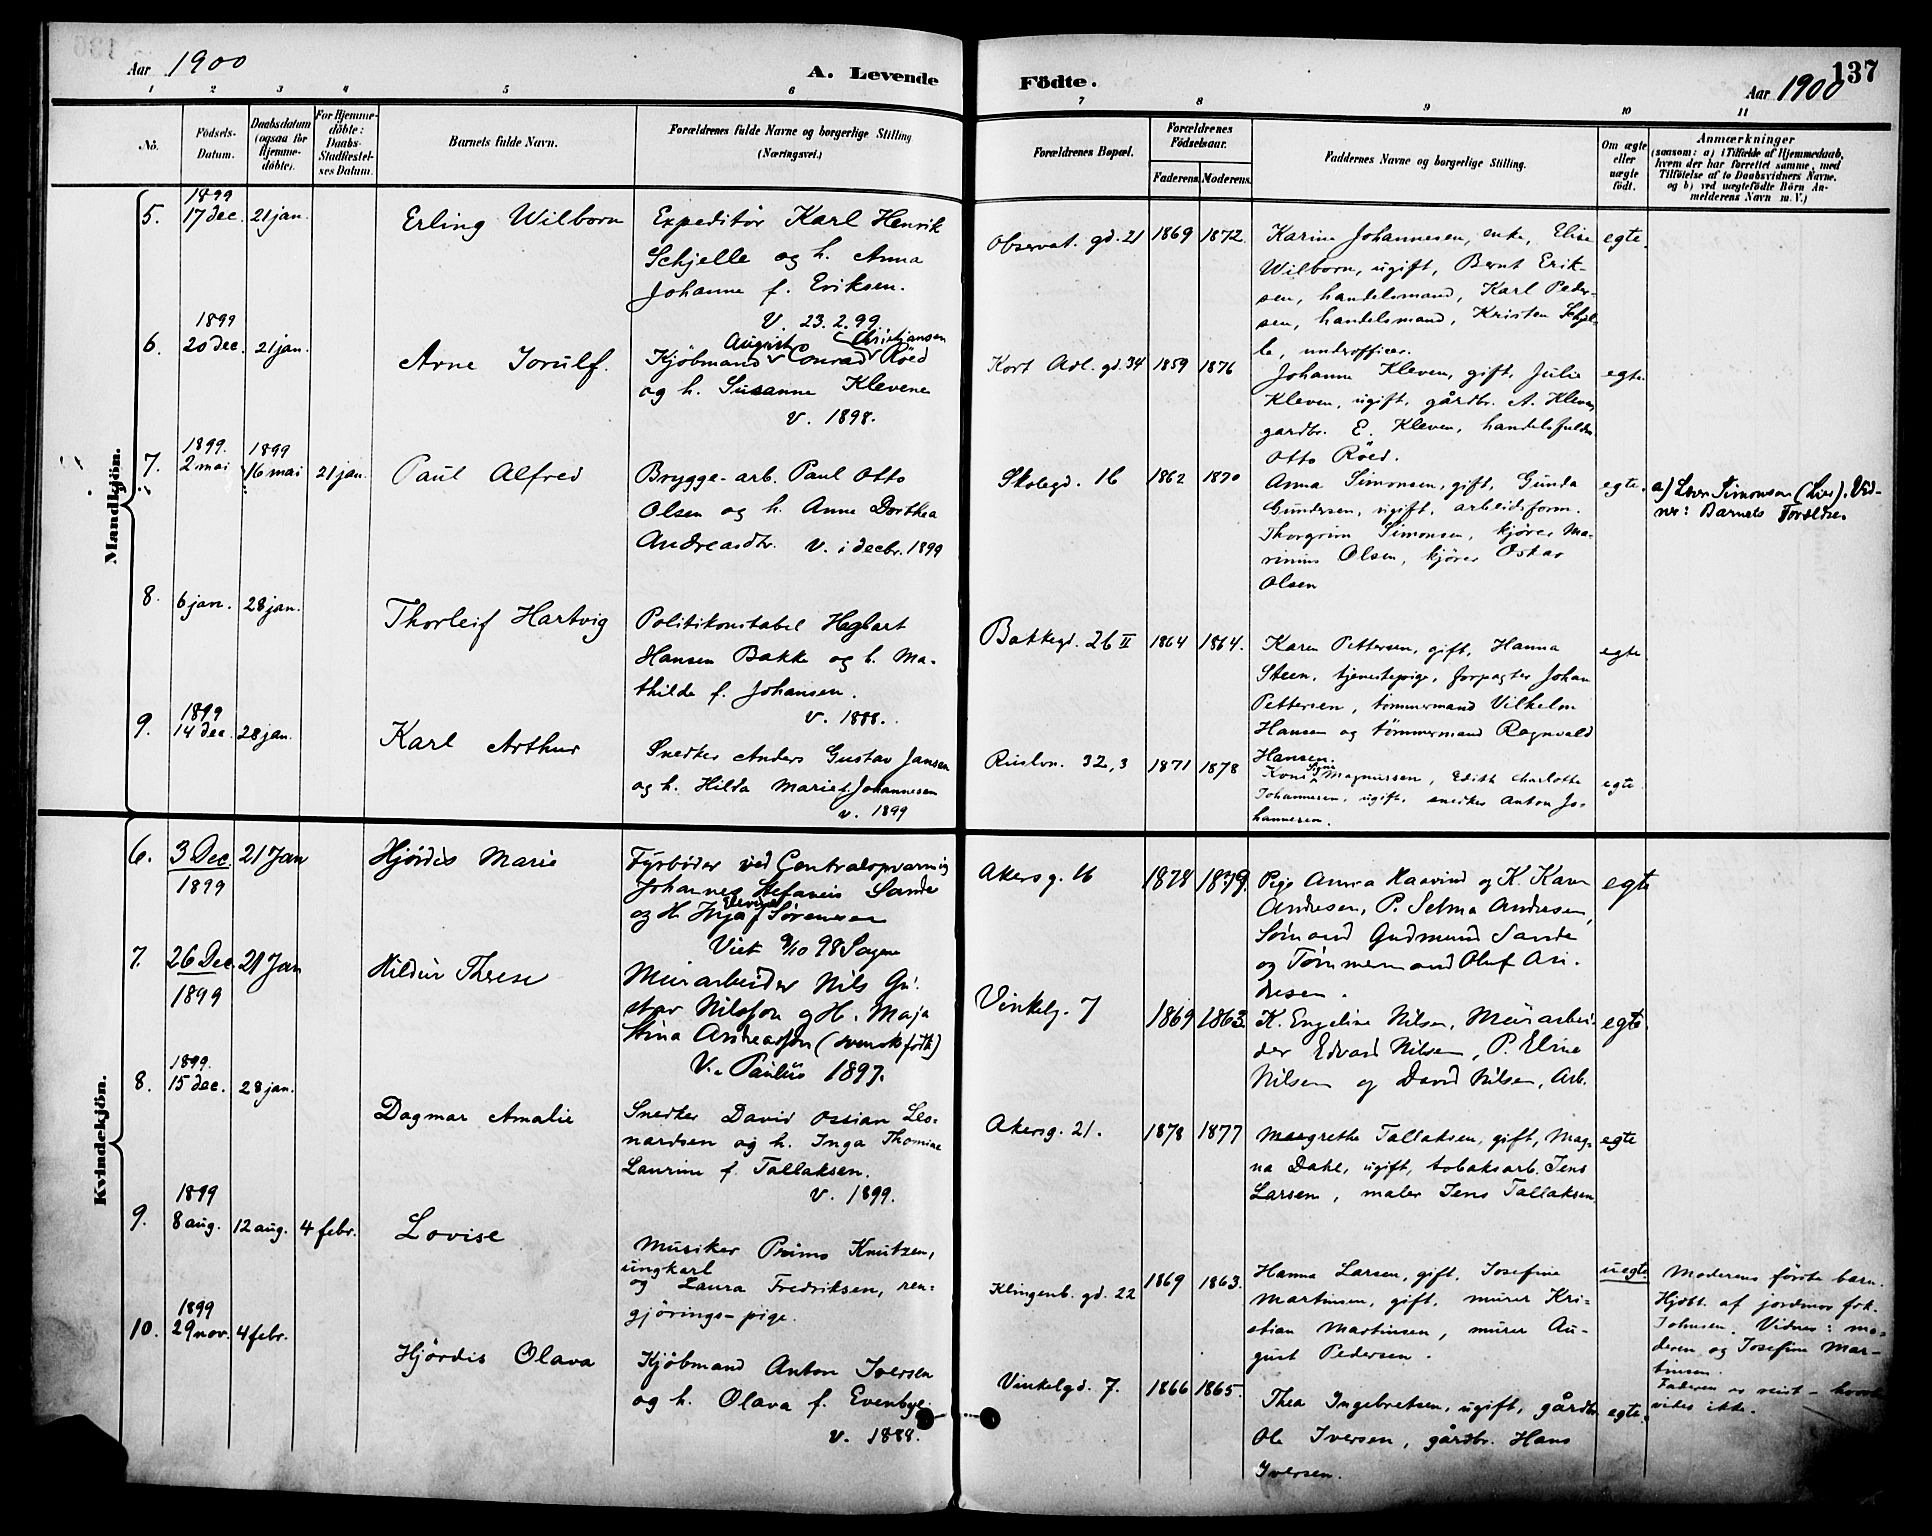 Aar 1900
A. Levende
Födte.
137
Aar 1900
1 2 3 4 5 6 7 8 9 10 11
No.
Födsels-Datum.
Daabsdatum (ogsaa for Hjemmedöbte).
For Hjemmedöbte: Daabs-Stadfæstelses Datum.
Barnets fulde Navn.
Forældrenes fulde Navne og borgerlige Stilling (Næringsvei.)
Forældrenes Bopæl.
Forældrenes Födselsaar.
Faderens. Moderens.
Faddernes Navne og borgerlige Stilling.
Om ægte eller uægte födt.
Anmærkninger
(saasom: a) i Tilfælde af Hjemmedaab, hvem der har forrettet samme, med Tilföielse af to Daabsvidners Navne, og b) ved uægtefödte Börn Anmelderens Navn m. V.)
Mandkjön.
5. 1899 17 dec. 21 jan.
Erling Wilborn
Expeditør Karl Henrik
Schjelle og h. Anna
Johanne f. Eriksen.
V. 23.2.99
Observat. gd. 21 1869 1872.
Karine Johannesen, enke, Elise
Wilborn, ugift, Bernt Erik-
sen, handelsmand, Karl Peder-
sen, handelsmand, Kristen Schjel-
le, underofficer.
egte.
6. 1899 20 dec. 21 jan.
Arne Jorulf.
August Christiansen
Kjöbmand Conrad Röed
og h. Susanne Klevene
v. 1898.
Kort Adl. gd. 34 1859 1876
Johanne Kleven, gift, Julie
Kleven, ugift, gårdbr. A. Kleven,
gardbr. E. Kleven, handelsfuldm.
Otto Röed.
egte.
7. 1899. 2 mai 1899 16 mai 21 jan.
Paul Alfred
Brygge-arb. Paul Otto
Olsen og h. Anne Dorthea
Andreasdtr. v. i decbr. 1899
Skolegd. 16 1862 1870
Anna Simonsen, gift, Gunda
Gundersen, ugift, arbeidsform.
Thorgrim Simonsen, kjörer Ma-
rinius Olsen, kjörer Oskar
Olsen
egte.
a) Simonsen Vid-
ner: Barnets Forældre
8. 6 jan. 28 jan.
Thorleif Hartvig
Politikonstabel Hagbart
Hansen Bakke og h. Ma-
thilde f. Johansen.
v. 1888.
Bakkegd. 26 II 1864 1864.
Karen Pettersen, gift, Hanna
Steen, tjenestepige, forpagter Johan
Pettersen, tömmermand Vilhelm
Hansen og tömmermand Ragnvald
Hansen.
egte
9. 1899 14 dec. 28 jan.
Karl Arthur
Snedker Anders Gustav Jansen
og h. Hilda Marie f. Johannesen
v. 1899
32, 3 1871 1878
Magnussen, Edith Charlotte
Johannesen, ugift, snedker Anton Jo-
hannesen.
egte.
Kvindekjön.
6. 3 Dec. 1899 21 Jan
Hjördis Marie
Fyrbøder ved Centralopvarmning
Johannes Stefanius Sande
og H. f. Sørensen
Viet 9/10 98 Sagene
Akersg. 16 1878 1879.
Pige Anna Haavind og K. Karen
Andresen, P. Selma Andresen,
Sømand Gudmund Sande
og Tømmermand Oluf An-
dresen.
egte
7. 26 Dec. 1899 21 Jan
Hildur Therese
Murarbeider Nils Gu-
stav Nilsson og H. Maja
Stina Andreasson (svensk födt)
V. Paulus 1897.
Vinkelg. 7 1869 1863.
K. Engeline Nilsen, Murarbei-
der Edvard Nilsen, P. Eline
Nilsen og David Nilsen, Arb.
egte
8. 1899. 15 dec. 28 jan.
Dagmar Amalie
Snedker David Ossian Leo-
nardsen og h. Inga Thomine
Laurine f. Tallaksen.
v. 1899.
Akersg. 21. 1878 1877
Margrethe Tallaksen, gift, Mag-
na Dahl, ugift, tobaksarb. Jens
Larsen, maler Jens Tallaksen
egte
9. 1899 8 aug. 12 aug. 4 febr.
Lovise
Musiker Primo Knutzen,
ungkarl
og Laura Fredriksen, ren-
gjörings-pige.
Klingenb. gd. 22 1869 1863.
Hanna Larsen, gift, Josefine
Martinsen, gift, murer Kri-
stian Martinsen, murer Au-
gust Pedersen.
uegte
Moderens første barn.
Hjdbt. af jordmor frk.
Johnsen. Vidner: mo-
deren og Josefine Mar-
tinsen.
Faderen er reist - hvorhen
vides ikke.
10. 1899 29 nov. 4 febr.
Hjördis Olava
Kjöbmand Anton Iversen
og h. Olava f. Evenbye.
v. 1888.
Vinkelgd. 7. 1866 1865.
Thea Ingebretsen, ugift, gårdbr.
Ole Iversen, gårdbr. Hans
Iversen.
egte.